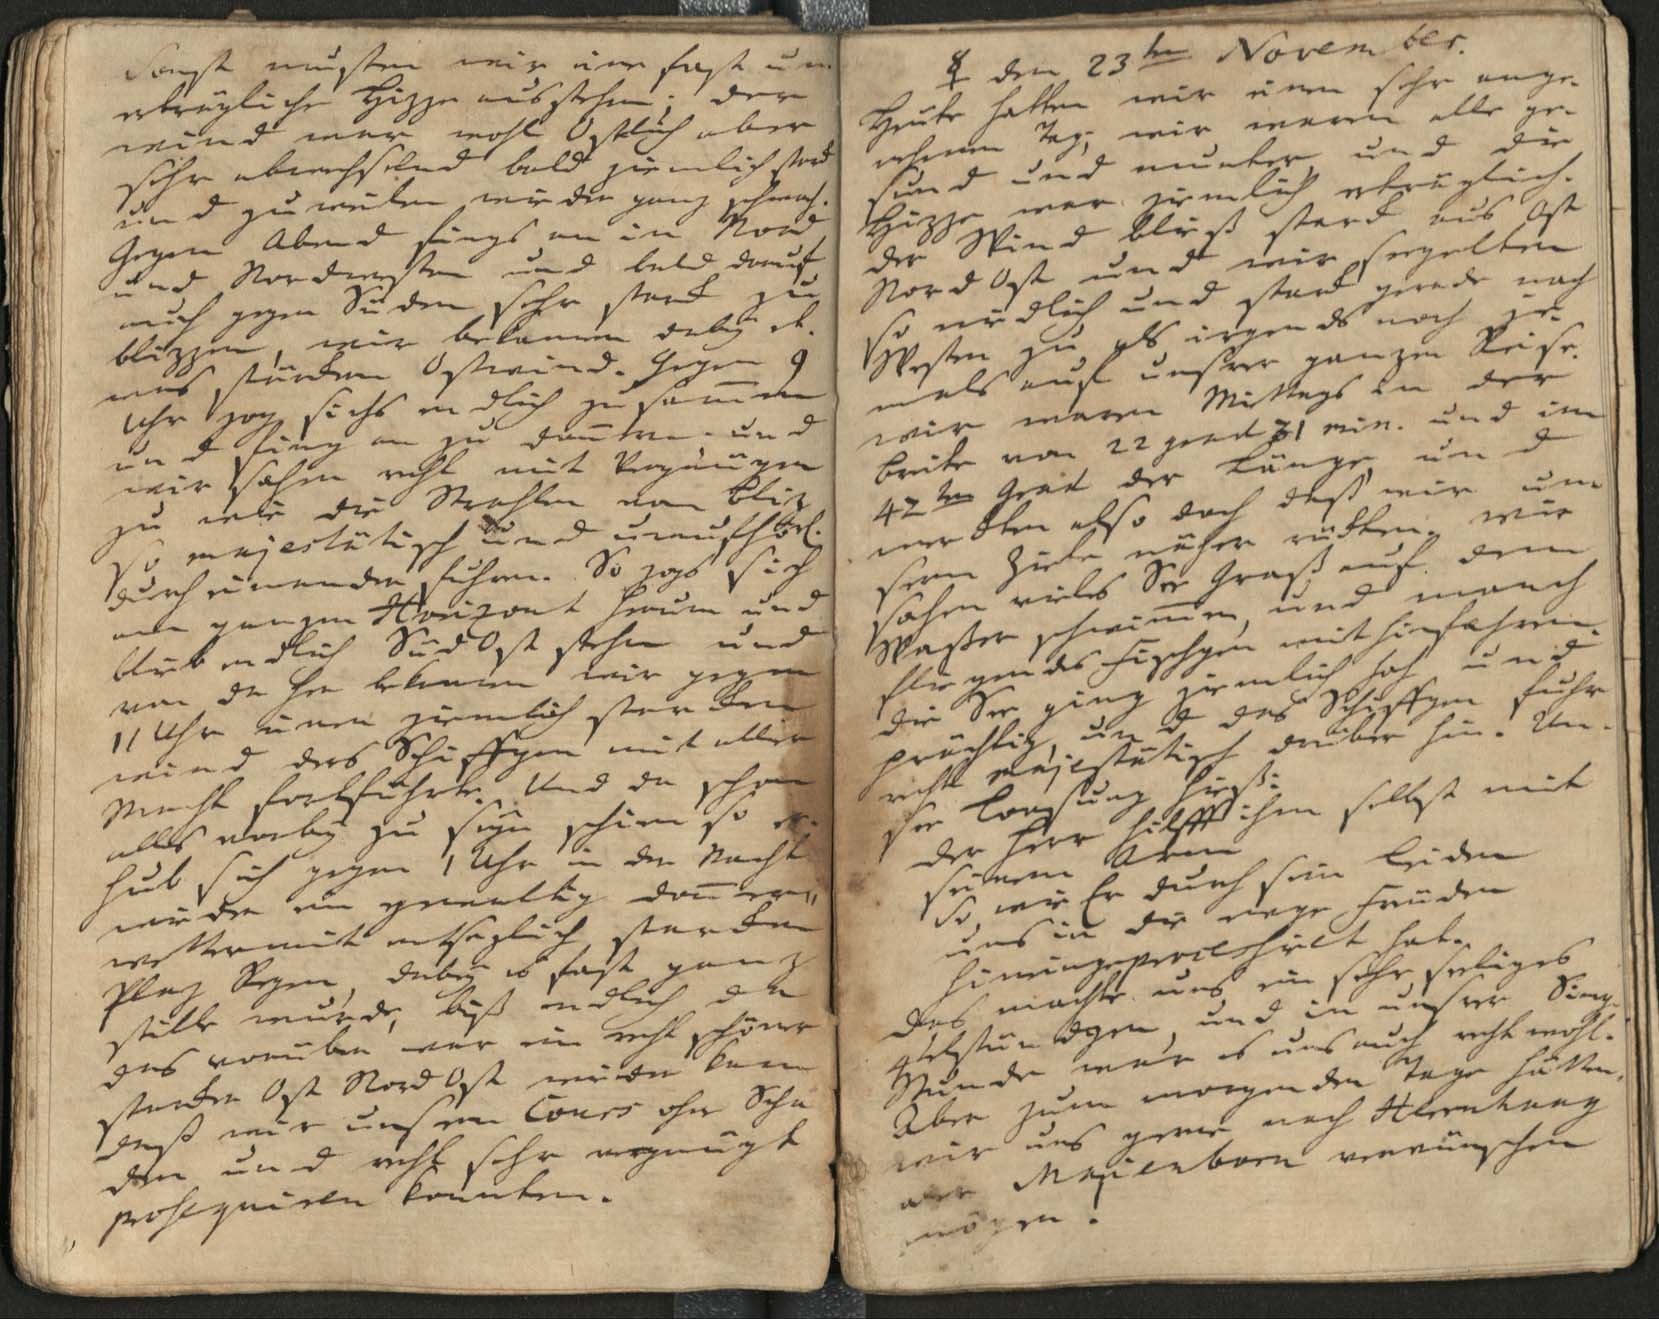 Sonst musten wir eine fast un
erträgliche Hizze ausstehen; der
wind war wohl Östlich aber
sehr abwechselnd bald ziemlich starck
und zuweilen wieder ganz schwach.
Gegen Abend fings an in Nord
und Nordwesten und bald drauf
auch gegen Süden sehr starck zu
blizzen, wir bekamen dabey et-
was stärckern Ostwind. Gegen 9
Uhr zog sichs endlich zusammen
und fing an zu donnern. und
wir sahen recht mit Vergnügen
zu wie die Strahlen vom Bliz
so majestätisch und unaufhörl.
durch einander fuhren. So zogs sich
am ganzen Horizont herum und
blieb endlich Süd Ost stehn und
von da her bekamen wir gegen
11 Uhr einen ziemlich starcken
wind ders Schiffgen mit aller
Macht fortführte. Und da schon
alles vorbey zu seyn schien so er-
hub sich gegen 1 Uhr in der Nacht
wieder ein gewaltig donner"
wetter mit entsezlich starcken
Plaz Regen, dabey es fast ganz
stille wurde, biß endlich da
das vorüber war ein recht schöner
starcker Ost Nord Ost wieder kam
daß wir unsern Cours ohne Scha
den und recht sehr vergnügt
prosequiren konnten.
☿ den 23ten November.
Heute hatten wir einen sehr ange-
nehmen Tag; wir waren alle ge-
sund und munter und die
Hizze war ziemlich erträglich.
der Wind bließ starck aus Ost
Nord Ost und wir seegelten
so niedlich und starck gerade nach
Westen zu als irgends noch je-
mals auf unsrer ganzen Reise.
wir waren Mittags in der
breite von 22 grad 31 min. und im
47ten Grad der Länge, und
merckten also doch daß wir un
serm Ziele näher rückten. wir
sahen vieles See Graß auf dem
Waßer schwimmen, und manch
fliegendes Fischgen mit hinfahren.
die See ging ziemlich hoch und
prächtig, und das Schiffgen fuhr
recht majestätisch drüber hin. Un-
sre Loosung hieß:
der Herr hilfft ihm selbst mit
seinem Arm
So wie Er durch sein Leiden
uns in die ewge Freuden
hineingeprocessirt hat.
Das machte uns ein sehr seeliges
stündgen, und in unsrer Sing-
Stunde war es uns auch recht wohl.
Aber zum morgenden Tage hätten
wir uns gerne nach Herrnhaag
oder Marienborn verwünschen
mögen.